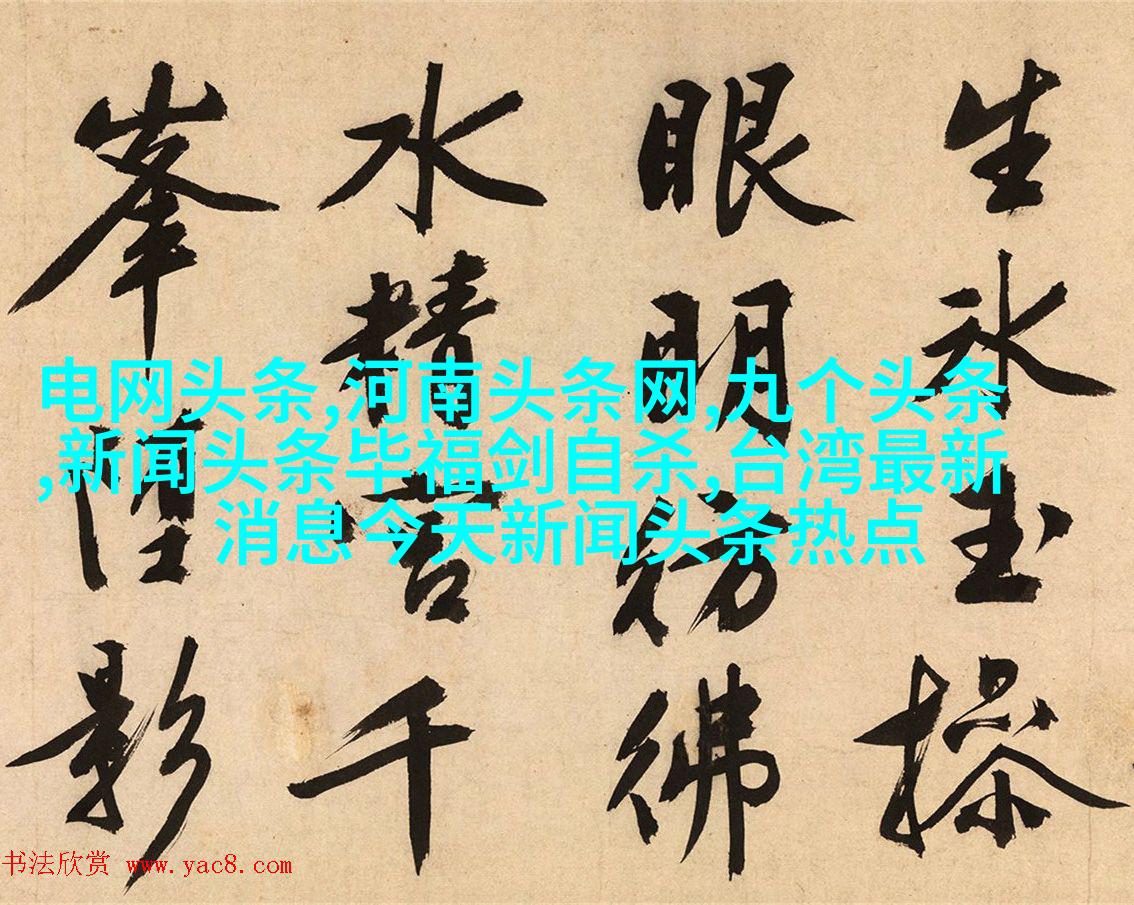 生氷玉操
眼明彷彿
水精宫千
峯堕影
电网头条,河南头条网,九个头条
,新闻头条毕福剑自杀,台湾最新
消息今天新闻头条热点
书法欣赏 www.yac8.com